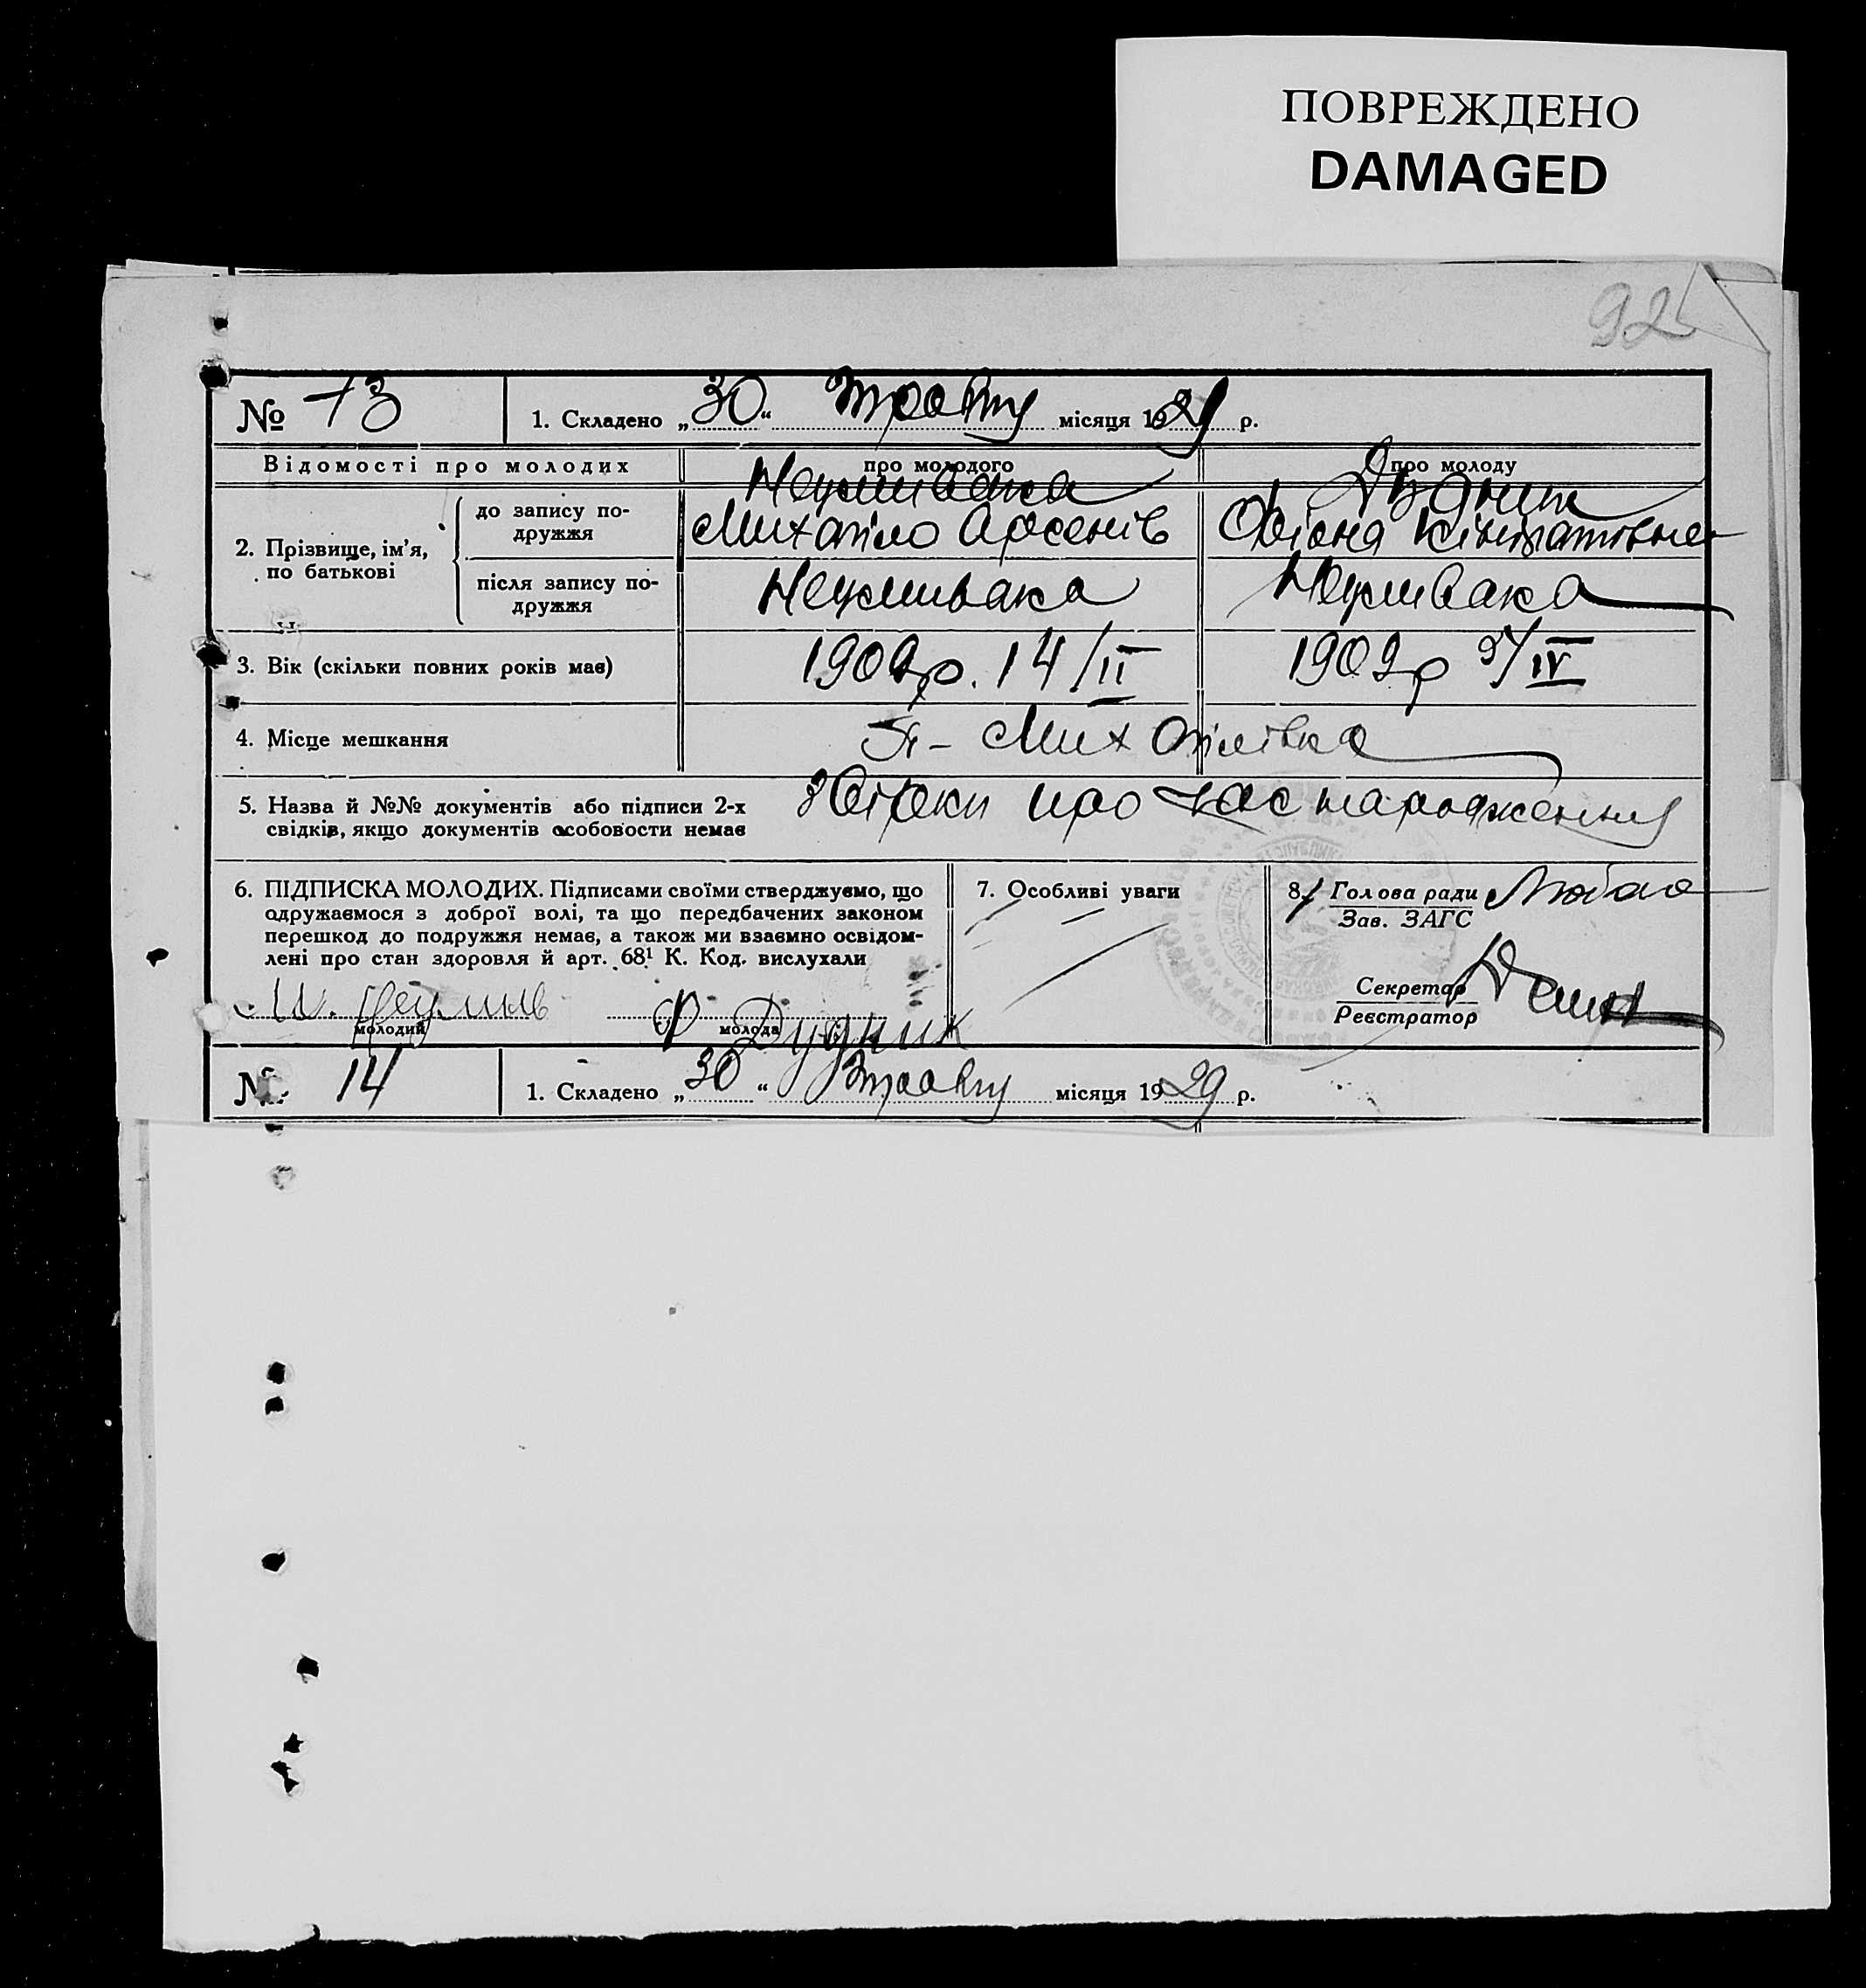 ПОВРЕЖДЕНО
DAMAGED
92
№ 13 1. Складено „30“ Травня місяця 1929 р.
Відомості про молодих про молодого про молоду
Неумивака Дудник
до запису подружжя Михайло Арсенів Кіндратівна
2. Прізвище, ім’я, по батькові
після запису подружжя Неумивака Неумивака
3. Вік (скільки повних років має) 1909р. 14/II 1909р 5/IV
4. Місце мешкання Михайлівка
5. Назва й №№ документів або підписи 2-х Витяги про час народження
свідків, якщо документів особовости немає
6. ПІДПИСКА МОЛОДИХ. Підписами своїми стверджуємо, що
одружаємося з доброї волі, та що передбачених законом
перешкод до подружжя немає, а також ми взаємно освідом-
лені про стан здоровля й арт. 68¹ К. Код. вислухали
М. Неумив Ф. Дудник
молодий молода
7. Особливі уваги
8. Голова ради
Зав. ЗАГС
Секретар
Реєстратор
№ 14 1. Складено „30“ Травня місяця 1929 р.